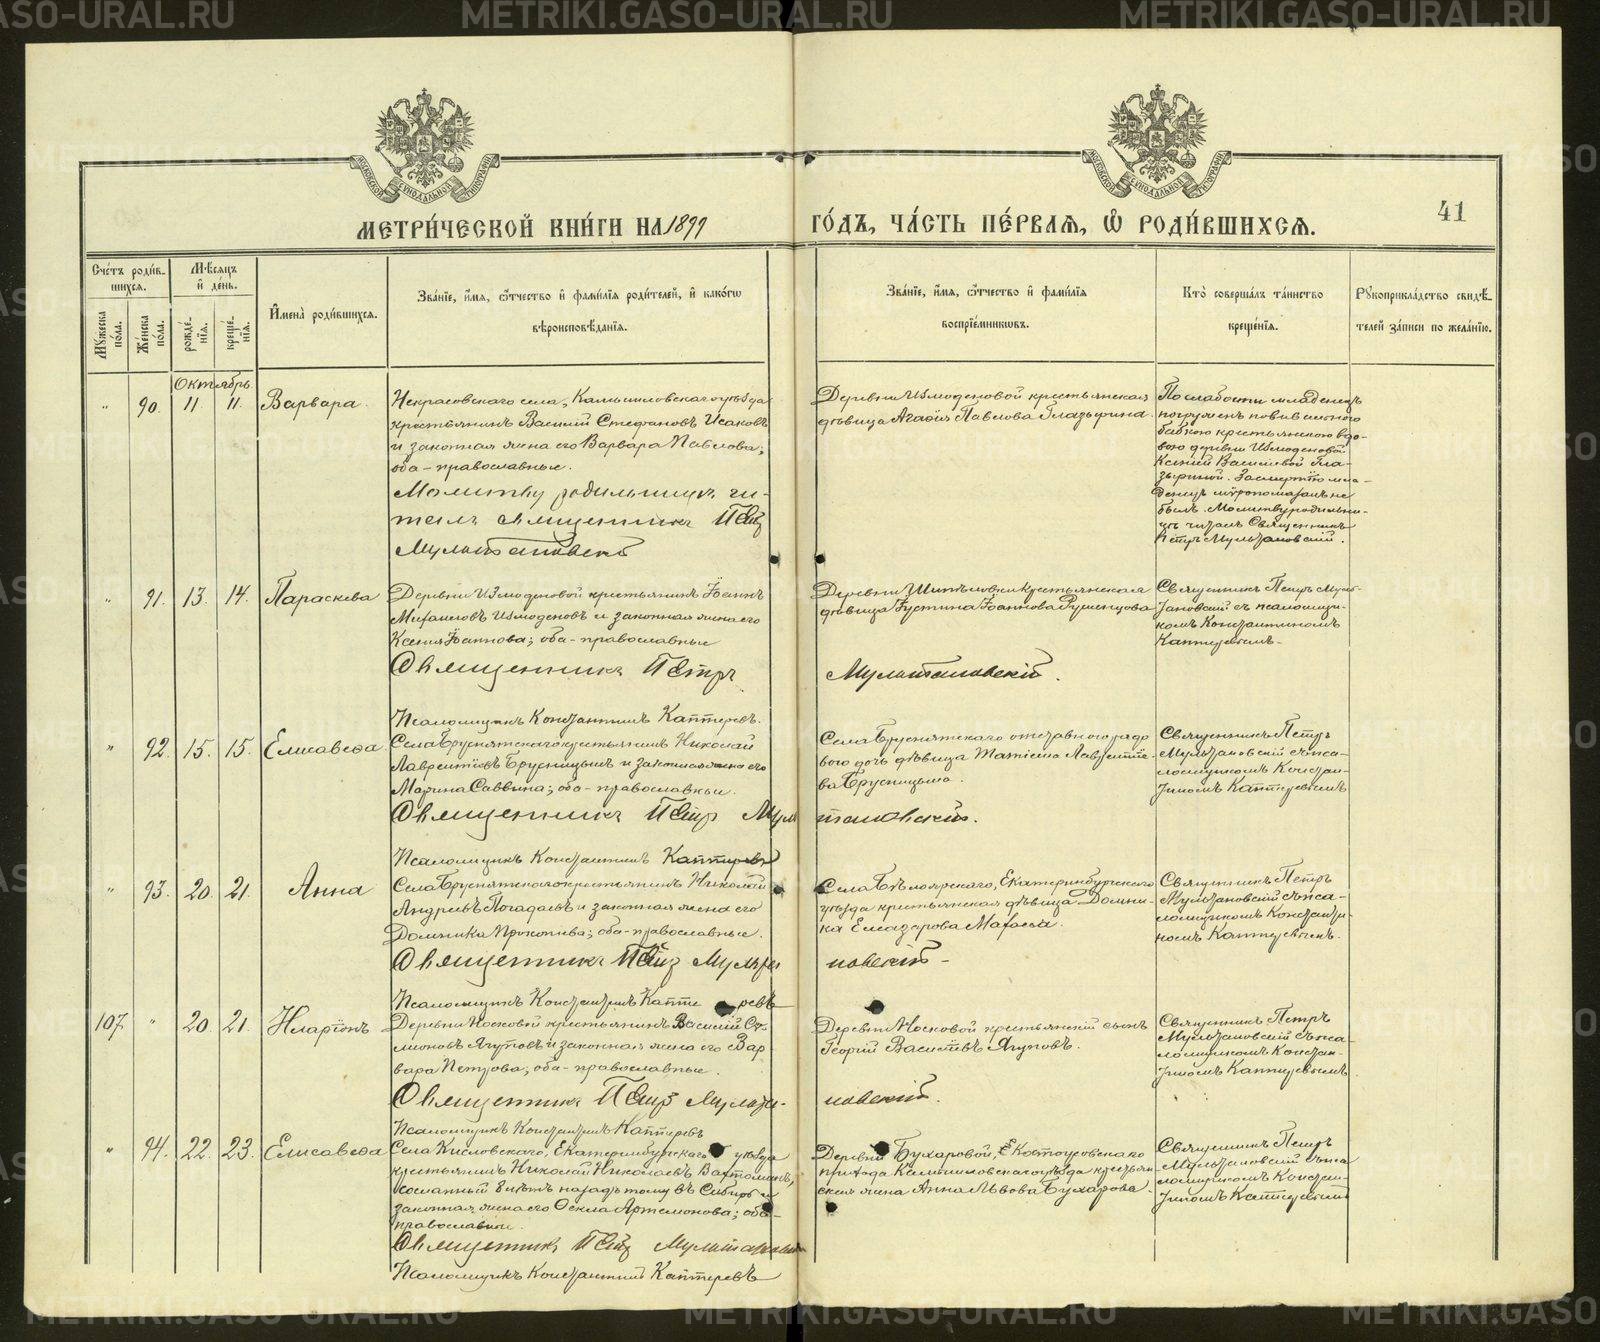 METRIKI.GASO-URAL.RU
МЕТРИ́ЧЕСКОЙ КНИ́ГИ НА 1899 ГО́ДЪ, ЧА́СТЬ ПЕ́РВАЯ, Ѡ РОДИ́ВШИХСЯ.
41
Сче́тъ роди́вшихся.
Му́жеска по́ла.
Же́нска по́ла.
Мѣ́сяцъ и́ де́нь.
рожде́нїя.
креще́нїя.
И́мена̀ роди́вшихся.
Зва́нїе, и́мя, ѻ́тчество и́ фами́лїя роди́телей, и́ како́гѡ
вѣроисповѣ́данїя.
Зва́нїе, и́мя, ѻ́тчество и́ фами́лїя
воспрїе́мникѡвъ.
Кто̀ соверша́лъ та́инство
креще́нїя.
Рукоприкла́дство свидѣ́-
телей за́писи по жела́нїю.
Октябрь
" 90. 11. 11. Варвара.
Некрасовскаго села, Камышловскаго уѣзда
крестьянинъ Василий Стефановъ Исаковъ
и законная жена его Варвара Павлова;
оба - православные.
Молитву родильницѣ чи-
талъ священникъ Петръ
Мультановскій
Деревни Измоденовой крестьянская
дѣвица Агафія Павлова Глазырина.
По слабости младенецъ
погруженъ повивальною
бабкою крестьянскою вдо-
вою деревни Измоденовой
Ксеніей Васильевой Гла-
зыриной. За смертію мла-
денецъ мѵропомазанъ не
былъ. Молитву родильни-
цѣ читалъ Священникъ
Петръ Мультановскій.
" 91. 13. 14. Параскева
Деревни Измоденовой крестьянинъ Іоаннъ
Михаиловъ Измоденовъ и законная жена его
Ксенія Іоаннова; оба - православные
Священникъ Петръ Мультановскій.
Псаломщикъ Константинъ Каптеревъ.
дѣвица Іустина Іоаннова Румянцова
Священникъ Петръ Муль-
тановский съ псаломщи-
комъ Константиномъ
Каптеревымъ.
" 92. 15. 15. Елисавеѳа
Села Бруснятскаго крестьянинъ Николай
Лаврентіевъ Брусницынъ и законная жена его
Марина Саввина; оба - православные.
Священникъ Петръ Мультановскій.
Псаломщикъ Константинъ Каптеревъ
Села Бруснятскаго отставного рядо-
вого дочь дѣвица Таисія Лавренті-
ва Брусницына.
Священникъ Петръ
Мультановскій съ пса-
ломщикомъ Констан-
тиномъ Каптеревымъ
" 93. 20. 21. Анна
Села Бруснятскаго крестьянинъ Николай
Андреевъ Погадаевъ и законная жена его
Домника Прокопіева; оба - православные.
Священникъ Петръ Мультановскій -
Псаломщикъ Константинъ Каптеревъ
Села Бѣлоярскаго, Екатеринбургскаго
уѣзда крестьянская дѣвица Домни-
ка Елеазарова
Священникъ Петръ
Мультановскій съ пса-
ломщикомъ Константи-
номъ Каптеревымъ.
107. " 20. 21. Иларіонъ
Деревни Носковой крестьянинъ Василій Си-
меоновъ Ягуповъ и законная жена его Вар-
вара Петрова; оба - православные.
Священникъ Петръ Мультановскій.
Псаломщикъ Константинъ Каптеревъ
Деревни Носковой крестьянский сынъ
Георгій Васильевъ Ягуповъ.
Священникъ Петръ
Мультановскій съ пса-
ломщикомъ Констан-
тиномъ Каптеревымъ.
" 94. 22. 23. Елисавеѳа
Села Кисловскаго, Екатеринбургскаго уѣзда
крестьянинъ Николай Николаевъ
сосланный 8 лѣтъ назадъ тому въ Сибирь и
законная жена его Ѳекла Артемонова; оба -
православные.
Священникъ Петръ Мультановскій
Псаломщикъ Константинъ Каптеревъ
Деревни Бухаровой,
прихода Камышловскаго уѣзда крестьян-
ская жена Анна Львова Бухарова.
Священникъ Петръ
Мультановскій съ пса-
ломщикомъ Констан-
тиномъ Каптеревымъ